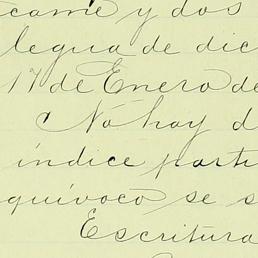 carne y dos
legua de dic
17 de Enero de
No hay d
índice parti
quívoco se s
Escritura